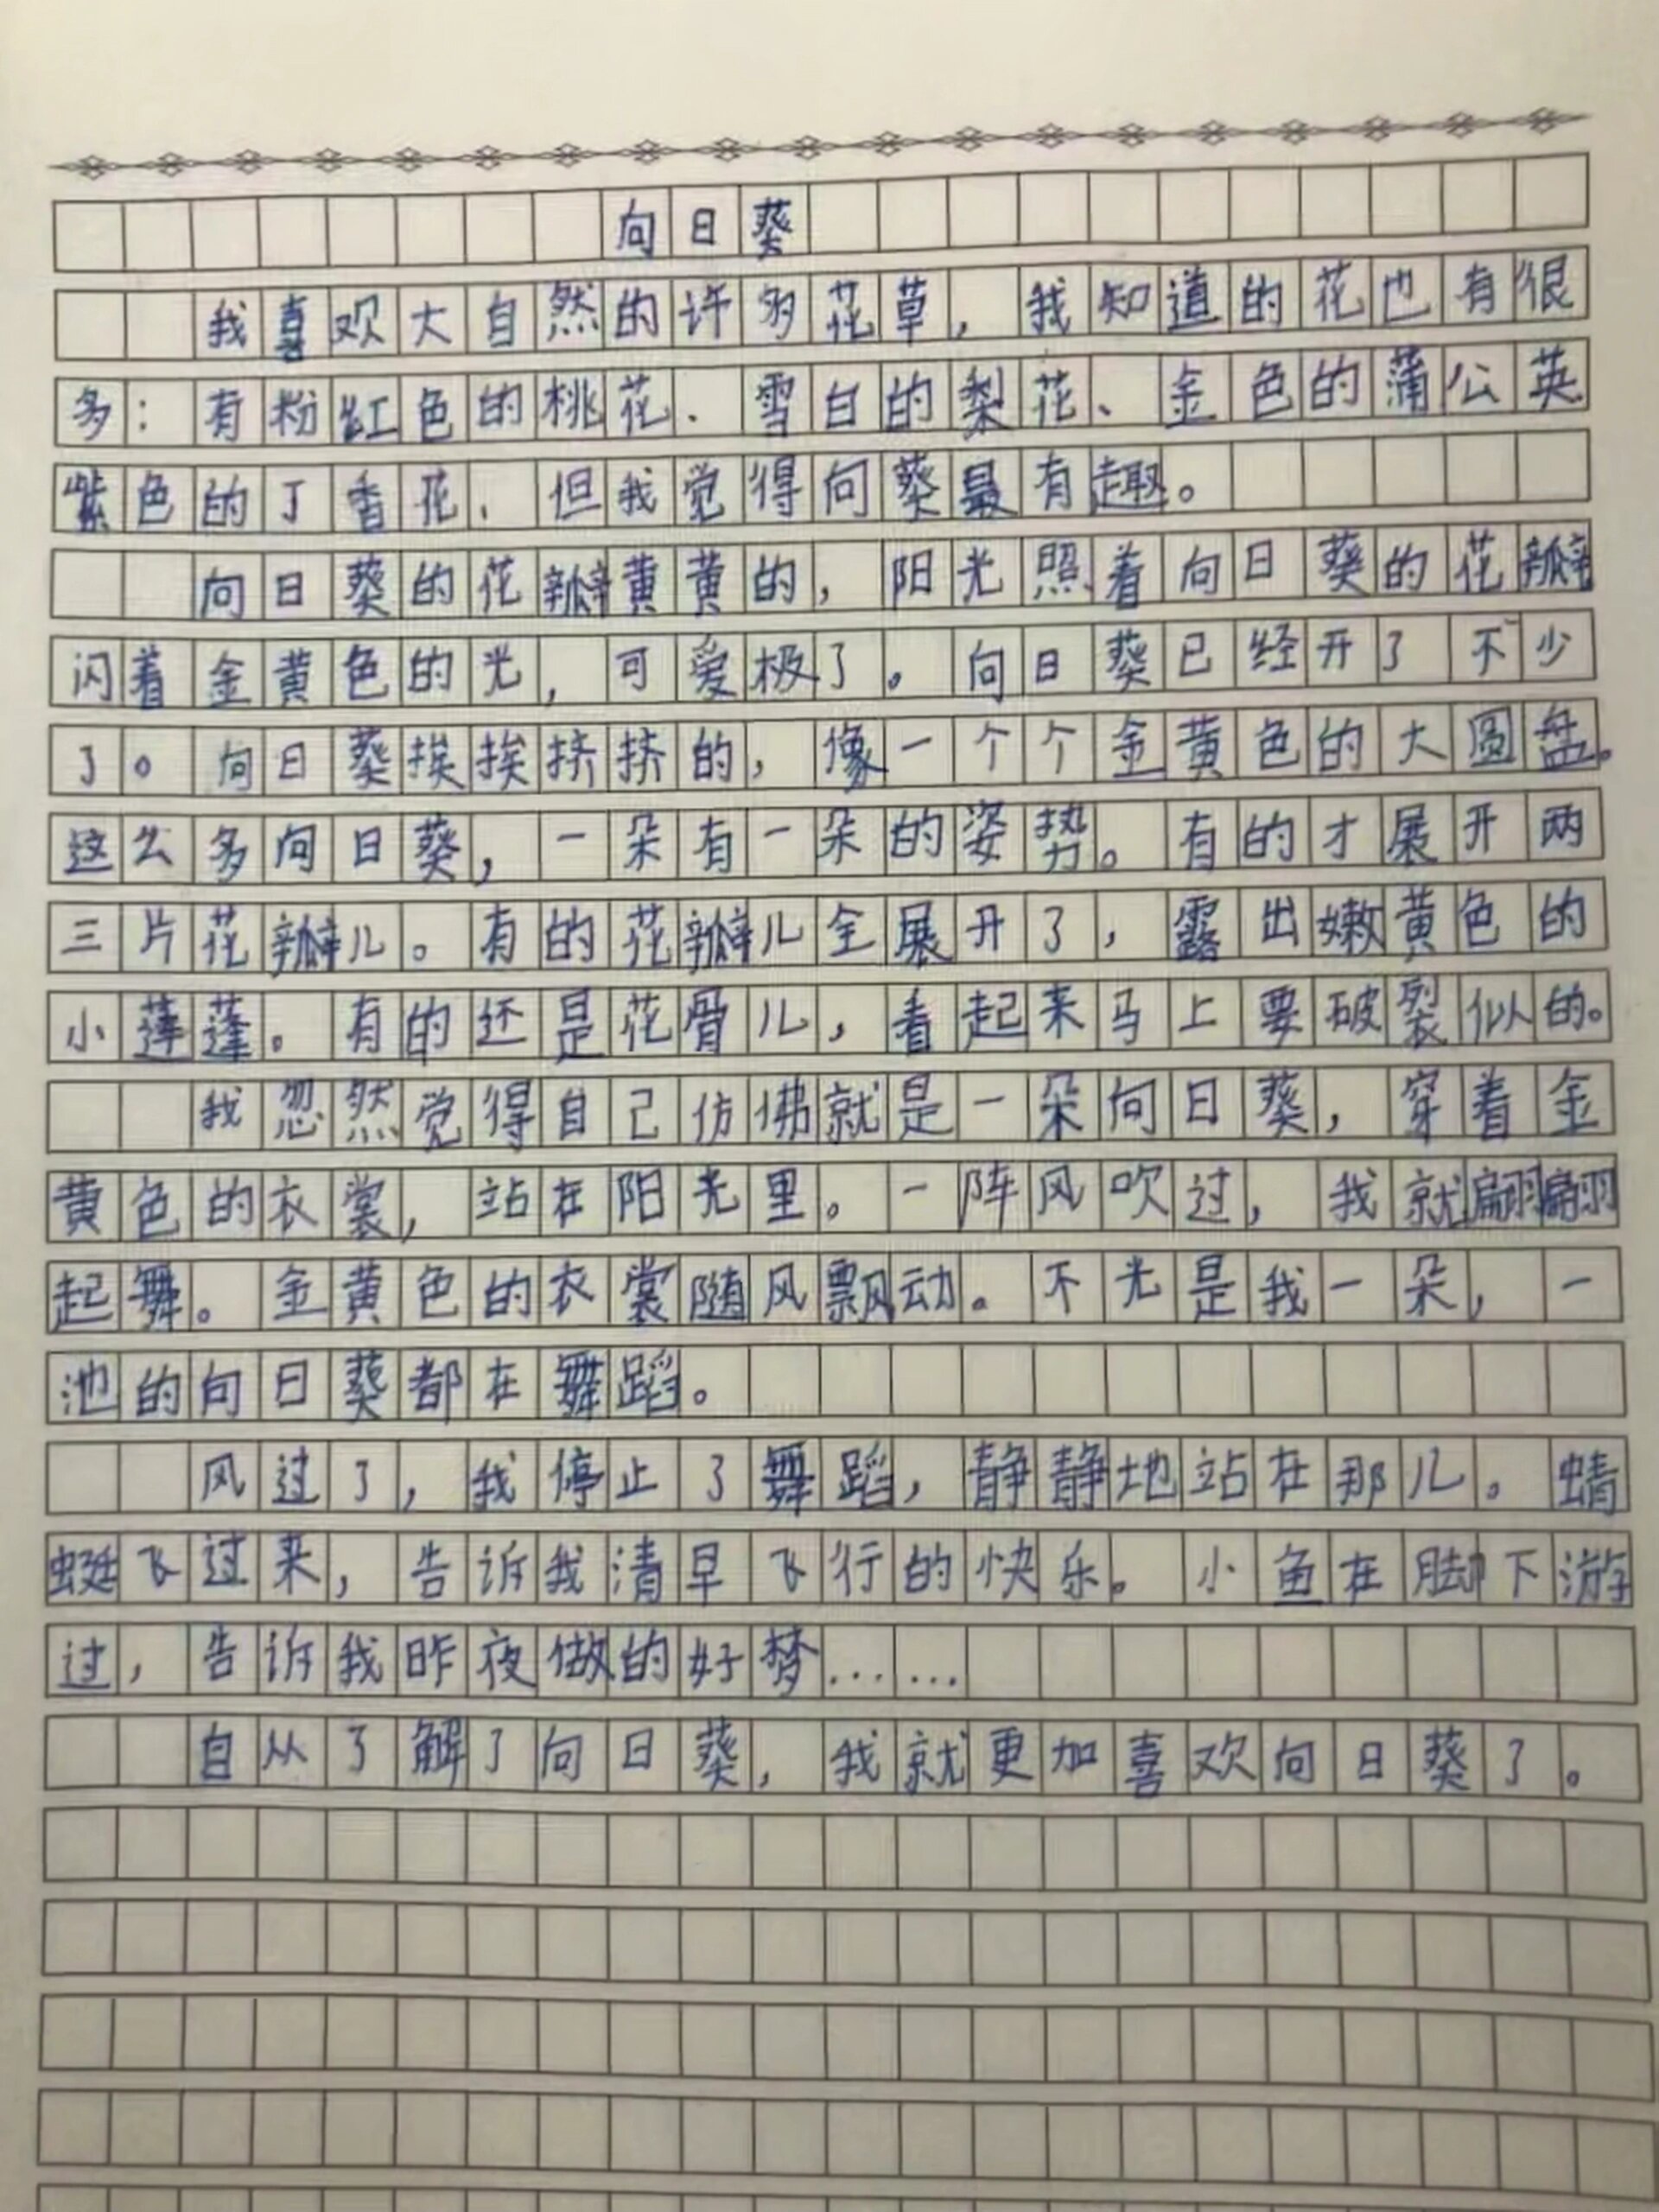 向日葵
我喜欢大自然的许多花草，我知道的花也有很
多：有粉红色的桃花、雪白的梨花、金色的蒲公英
紫色的丁香花，但我觉得向葵最有趣。
向日葵的花瓣黄黄的，阳光照着向日葵的花瓣
闪着金黄色的光，可爱极了。向日葵已经开了不少
了。向日葵挨挨挤挤的，像一个个金黄色的大圆盘。
这么多向日葵，一朵有一朵的姿势。有的才展开两
三片花瓣儿。有的花瓣儿全展开了，露出嫩黄色的
小莲蓬。有的还是花骨儿，看起来马上要破裂似的。
我忽然觉得自己仿佛就是一朵向日葵，穿着金
黄色的衣裳，站在阳光里。一阵风吹过，我就翩翩
起舞。金黄色的衣裳随风飘动。不光是我一朵，一
池的向日葵都在舞蹈。
风过了，我停止了舞蹈，静静地站在那儿。蜻
蜓飞过来，告诉我清早飞行的快乐。小鱼在脚下游
过，告诉我昨夜做的好梦……
自从了解了向日葵，我就更加喜欢向日葵了。